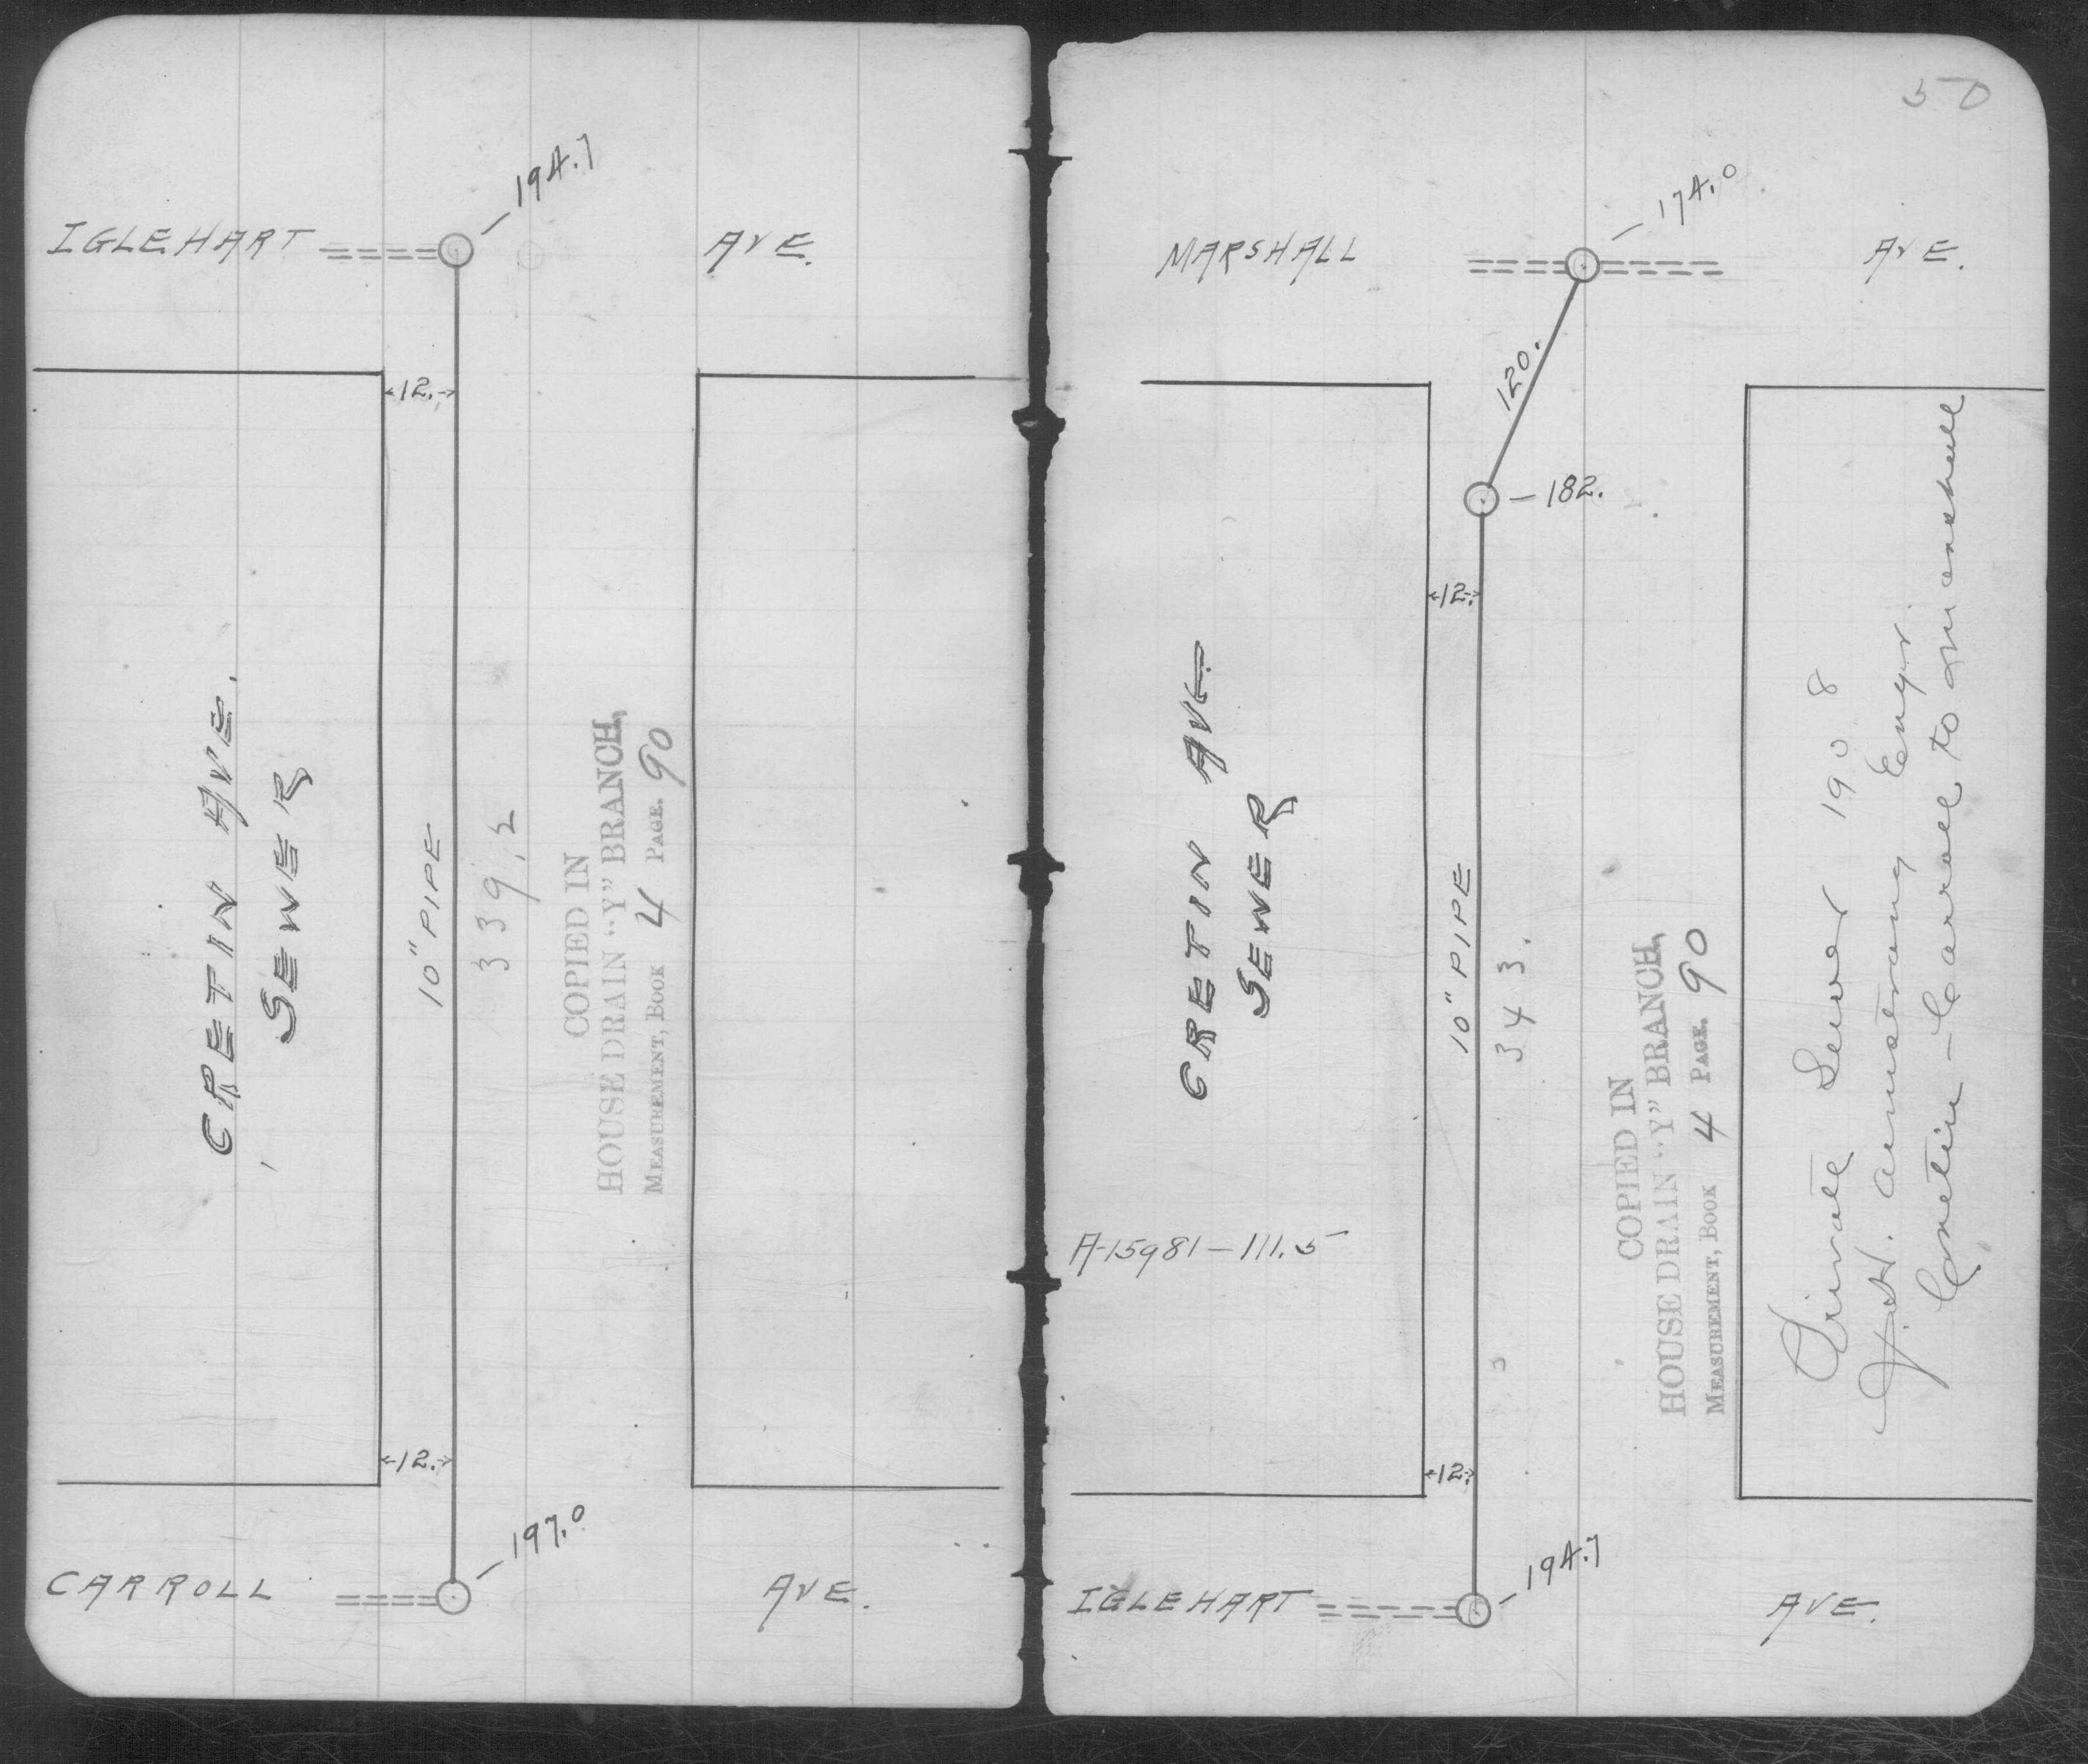 194.7
IGLEHART AVE.
12.
CRETIN AVE.
SEWER
10" PIPE
339.5
COPIED IN
HOUSE DRAIN "Y" BRANCH,
MEASUREMENT, BOOK 4 PAGE. 90
12.
197.0
CARROLL AVE.
50
174.0
MARSHALL AVE.
120.
182.
12.
CRETIN AVE.
SEWER
10" PIPE
343.
A-15981-111.5
COPIED IN
HOUSE DRAIN "Y" BRANCH,
MEASUREMENT, BOOK 4 PAGE. 90
Private Sewer 1908
J.H. Armstrong Engr.
Cretin - Carroll to Marshall
12.
194.7
IGLEHART AVE.